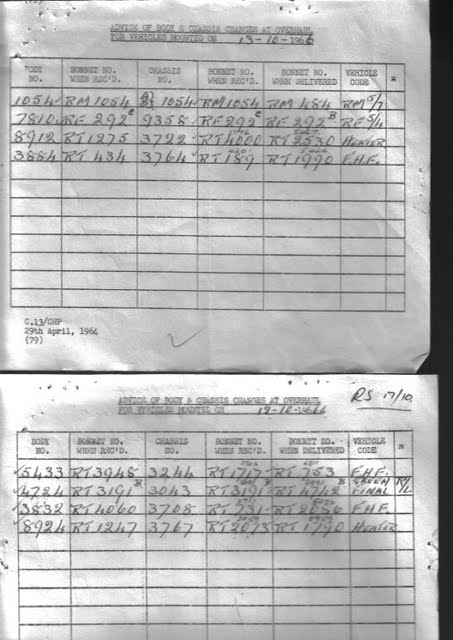 ADVICE OF BODY & CHASSIS CHANGES AT OVERHAUL
FOR VEHICLES MOUNTED ON 13-10-1966
BODY NO. BONNET NO. WHEN REC'D. CHASSIS NO. BONNET NO. WHEN REC'D. BONNET NO. WHEN DELIVERED VEHICLE CODE
1054 RM 1054 1054 RM 1054 RM 484 RM 5/7
7810 RF 292 C 9358 RF 292 C RF 292 B RF 5/4
8912 RT 1275 3722 RT 4000 RT 2530 HEATER
3884 RT 434 3764 RT 189 RT 1990 F.H.F.
C.13/CHP
29th April, 1964
(79)
RS 17/10
ADVICE OF BODY & CHASSIS CHANGES AT OVERHAUL
FOR VEHICLES MOUNTED ON 12-10-1966
BODY NO. BONNET NO. WHEN REC'D. CHASSIS NO. BONNET NO. WHEN REC'D. BONNET NO. WHEN DELIVERED VEHICLE CODE
5433 RT 3948 3244 RT 1717 RT 753 F.H.F.
4724 RT 3191 B 3043 RT 3191 B RT 4742 B GREEN FINAL R/L
3832 RT 4060 3708 RT 731 RT 2056 F.H.F.
8924 RT 1247 3767 RT 2073 RT 1790 HEATER